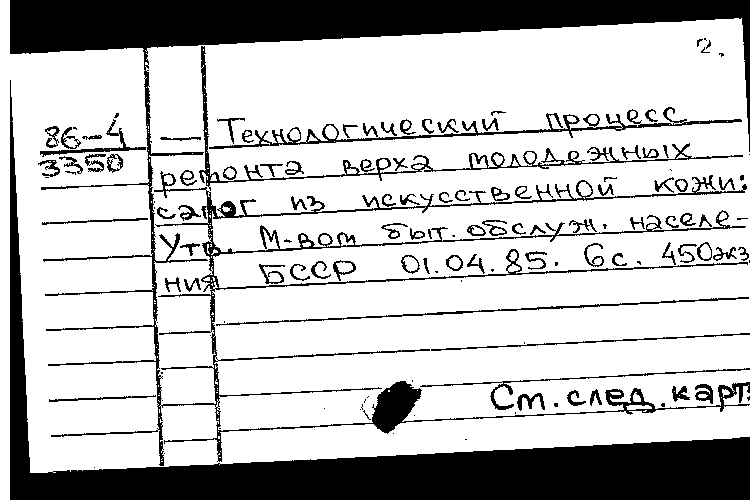 2.
86-4
3350
— Технологический процесс
ремонта верха молодежных
сапог из искусственной кожи:
Утв. М-вом быт. обслуж. населе-
ния БССР 01.04.85. 6с. 450экз
См. след. карт.